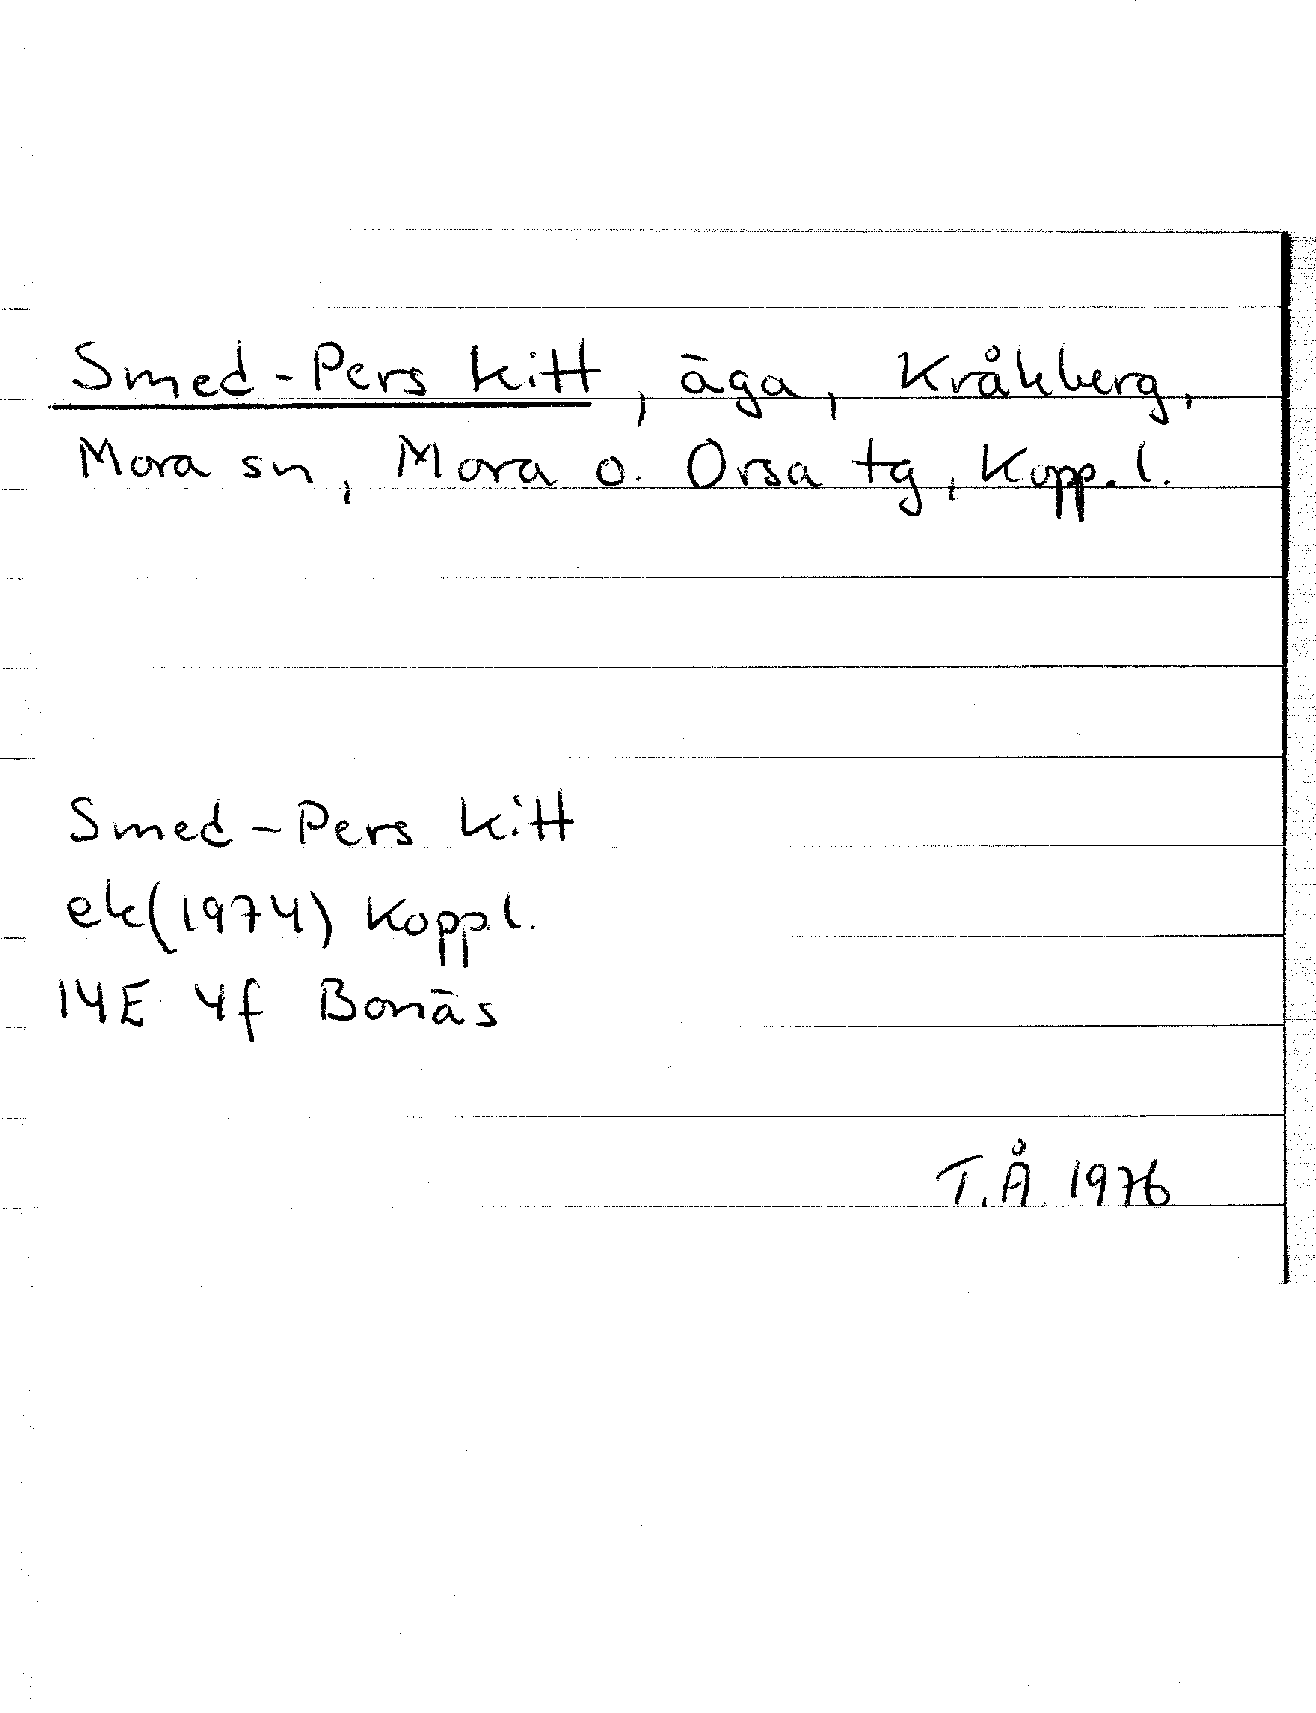 Smed-Pers kitt, äga, Kråkberg,
Mora sn, Mora o. Orsa tg, Kopp.l.
Smed-Pers kitt
ek(1974) Koppl.
14E 4f Bonäs
T.Å 1976